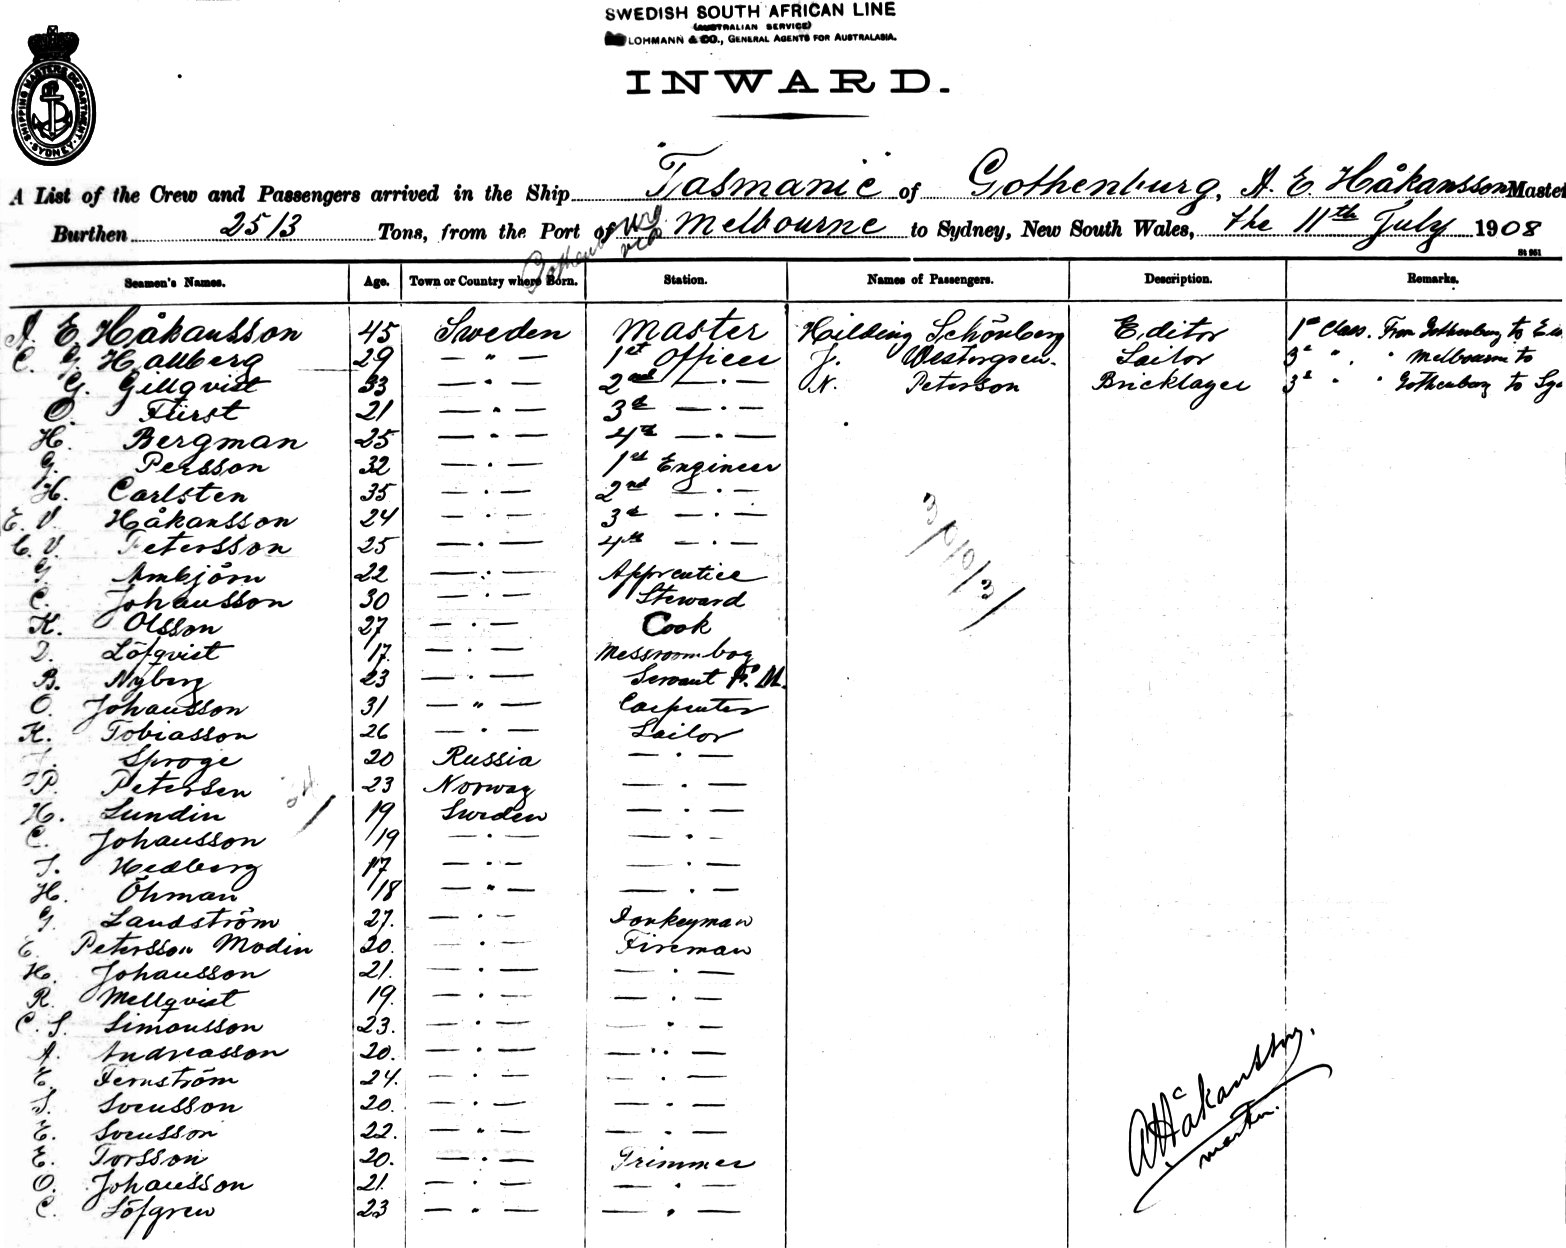 SWEDISH SOUTH AFRICAN LINE
(AUSTRALIAN SERVICE)
LOHMANN & CO., GENERAL AGENTS FOR AUSTRALASIA.
SHIPPING MASTERS DEPARTMENT
SYDNEY
INWARD.
A List of the Crew and Passengers arrived in the Ship "Tasmanic" of Gothenburg, A. E. Håkansson Master
Burthen 2513 Tons, from the Port of Gothenburg via Melbourne to Sydney, New South Wales, the 11th July 1908
Seamen's Names. Age. Town or Country where Born. Station. Names of Passengers. Description. Remarks.
A. E. Håkansson 45 Sweden Master Hilding Schönberg Editor 1st Class. From Gothenburg to
C. G. Hallberg 29 — " — 1st Officer J. Westergren. Sailor 3d " " Melbourne to
G. Gillqvist 33 — " — 2nd — " — N. Peterson Bricklayer 3d " " Gothenburg to Syd
O. Fürst 21 — " — 3d — " —
H. Bergman 25 — " — 4th — " —
G. Persson 32 — " — 1st Engineer
H. Carlsten 35 — " — 2nd — " —
E. V. Håkansson 24 — " — 3d — " —
C. V. Petersson 25 — " — 4th — " —
G. Ambjörn 22 — " — Apprentice
C. Johansson 30 — " — Steward
K. Olsson 27 — " — Cook
D. Löfqvist 17. — " — Messroomboy
B. Nyberg 23 — " — Servant F. M.
O. Johansson 31 — " — Carpenter
K. Tobiasson 26 — " — Sailor
Sproge 20 Russia — " —
P. Petersen 23 Norway — " —
H. Lundin 19 Sweden — " —
C. Johansson 19 — " — — " —
S. Hedberg 17 — " — — " —
H. Öhman 18 — " — — " —
G. Landström 27. — " — Donkeyman
E. Petersson Modin 20. — " — Fireman
H. Johansson 21. — " — — " —
R. Mellqvist 19. — " — — " —
C. S. Simonsson 23. — " — — " —
A. Andreasson 20. — " — — " —
E. Fernström 24. — " — — " —
S. Svensson 20. — " — — " —
E. Svensson 22. — " — — " —
E. Torsson 20. — " — Trimmer
O. Johansson 21. — " — — " —
C. Löfgren 23 — " — — " —
A Håkansson,
master.